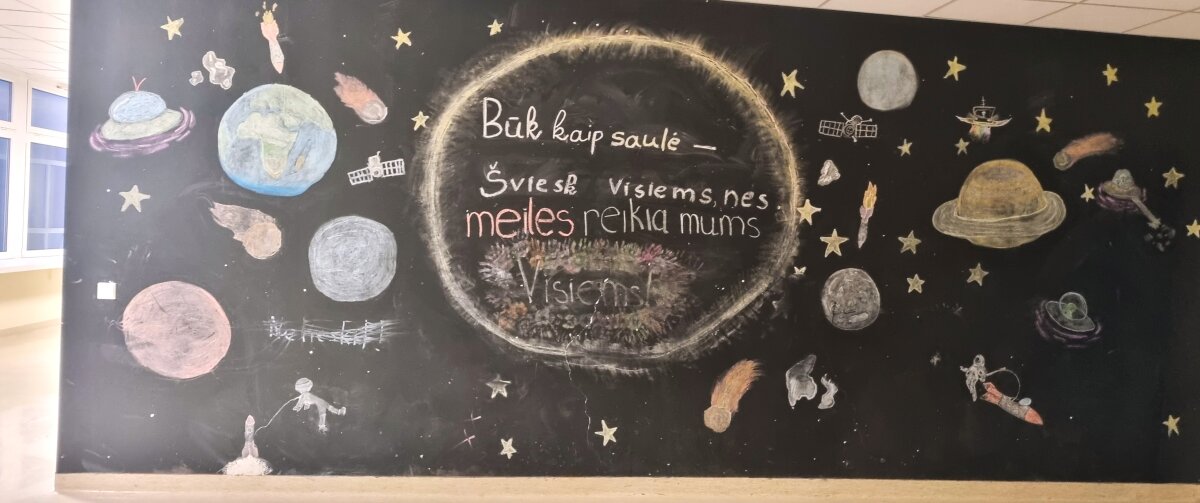 Būk kaip saulė –
Šviesk visiems, nes
meilės reikia mums
Visiems!